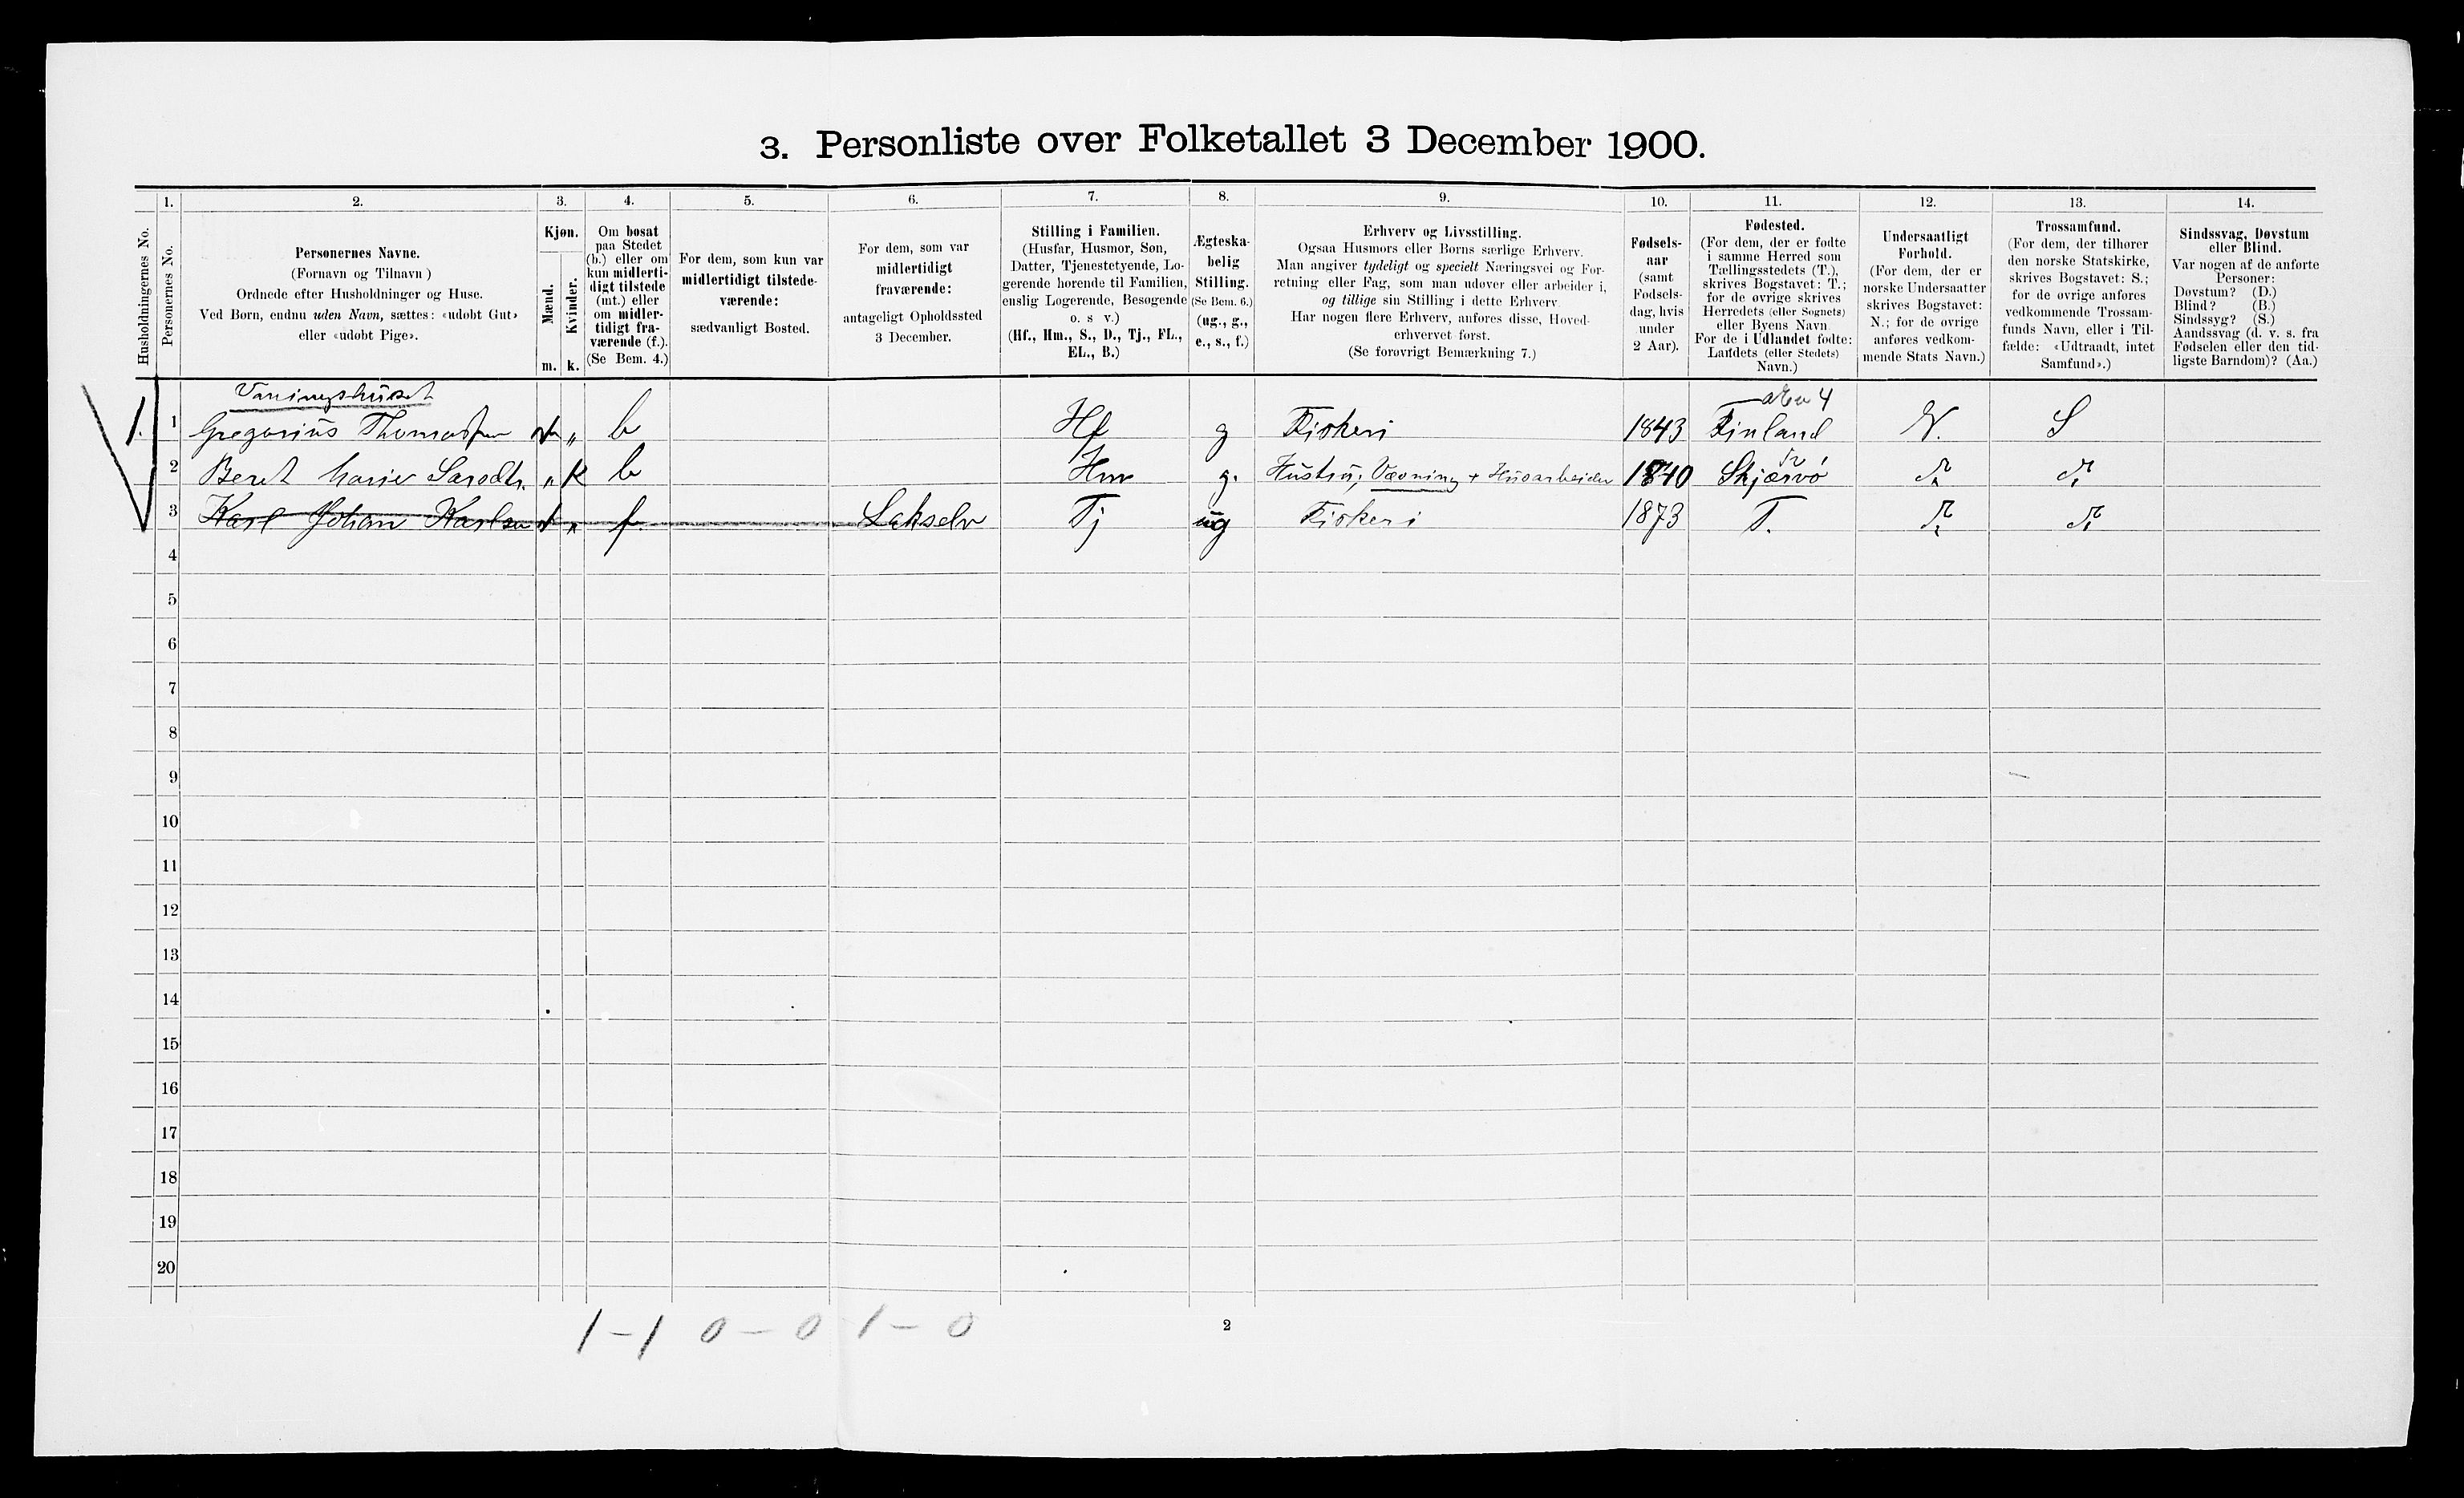 3. Personliste over Folketallet 3 December 1900.
1. 2. 3. 4. 5. 6. 7. 8. 9. 10. 11. 12. 13. 14.
Husholdningernes No.
Personernes No.
Personernes Navne.
(Fornavn og Tilnavn )
Ordnede efter Husholdninger og Huse.
Ved Børn, endnu uden Navn, sættes: «udøbt Gut»
eller «udøbt Pige».
Kjøn.
Mænd.
Kvinder.
m. k.
Om bosat
paa Stedet
(b.) eller om
kun midlerti-
digt tilstede
(mt.) eller
om midler-
tidigt fra-
værende (f.).
(Se Bem. 4.)
For dem, som kun var
midlertidigt tilstede-
værende:
sædvanligt Bosted.
For dem, som var
midlertidigt
fraværende:
antageligt Opholdssted
3 December.
Stilling i Familien.
(Husfar, Husmor, Søn,
Datter, Tjenestetyende, Lo-
gerende hørende til Familien,
enslig Logerende, Besøgende
o. s v.)
(Hf., Hm., S., D., Tj., FL.,
EL., B.)
Ægteska-
belig
Stilling.
(Se Bem. 6.)
(ug., g.,
e., s., f.)
Erhverv og Livsstilling.
Ogsaa Husmors eller Børns særlige Erhverv.
Man angiver tydeligt og specielt Næringsvei og For-
retning eller Fag, som man udøver eller arbeider i,
og tillige sin Stilling i dette Erhverv
Har nogen flere Erhverv, anføres disse, Hoved-
erhvervet først.
(Se forøvrigt Bemærkning 7.)
Fødsels-
aar
(samt
Fødsels-
dag, hvis
under
2 Aar).
Fødested.
(For dem, der er fødte
i samme Herred som
Tællingsstedets (T.),
skrives Bogstavet: T.;
for de øvrige skrives
Herredets (eller Sognets)
eller Byens Navn
For de i Udlandet fødte:
Landets (eller Stedets)
Navn.)
Undersaatligt
Forhold.
(For dem, der er
norske Undersaatter
skrives Bogstavet:
N.; for de øvrige
anføres vedkom-
mende Stats Navn.)
Trossamfund.
(For dem, der tilhører
den norske Statskirke,
skrives Bogstavet: S.;
for de øvrige anføres
vedkommende Trossam-
funds Navn, eller i Til-
fælde: «Udtraadt, intet
Samfund».)
Sindssvag, Døvstum
eller Blind.
Var nogen af de anførte
Personer:
Døvstum? (D.)
Blind? (B.)
Sindssyg? (S.)
Aandssvag (d. v. s. fra
Fødselen eller den tid-
ligste Barndom)? (Aa.)
Vaningshuset
1. 1 Gregorius Thomassen m „ b Hf g Fiskeri 1843 Finland N. S
2 Beret Marie Larsdtr. „ k b Hm g. Hustru, Vævning + Husarbeider 1840 Skjærvø
3 Karl Johan Karlsen „ f. Lakselv Tj ug Fiskeri 1873 T.
4
5
6
7
8
9
10
11
12
13
14
15
16
17
18
19
20
1 – 1 0 – 0 1 – 0
2